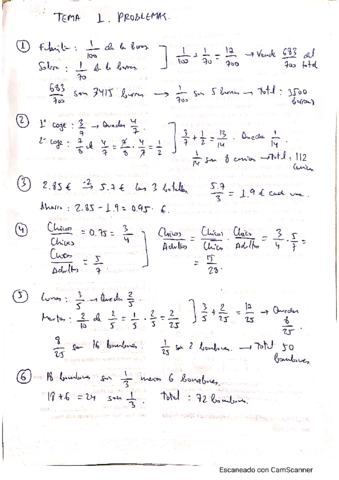 TEMA 1. PROBLEMAS.
① : 1/100 de la
Sobre : 1/70 de la
1/100 + 1/70 = /700 → 683/700 del total
683/700 son 3415 → 1/700 son 5 → Total : 3500
② 1º coge : 3/7 → Queda 4/7
2º coge : 7/8 de 4/7 = 7/8 · 4/7 = 1/2
3/7 + 1/2 = 13/14 Queda 1/14
1/14 son 8 → Total : 112
③ 2.85 € → 5.7 € las 3 botellas 5.7/3 = 1.9 € cada una.
Ahorro : 2.85 - 1.9 = 0.95 €.
④ Chicos/Chicas = 0.75 = 3/4
Chicas/Adultos = 5/7
Chicos/Adultos = Chicos/Chicas · Chicas/Adultos = 3/4 · 5/7 =
= 15/28
⑤ Lunes : 3/5 → Queda 2/5
Martes : 2/10 de 2/5 = 1/5 · 2/5 = 2/25
3/5 + 2/25 = /25 → Quedan 8/25
8/25 son 16 bombones. 1/25 son 2 bombones → Total 50
bombones
⑥ 18 bombones son 1/3 menos 6 bombones.
18 + 6 = 24 son 1/3. Total : 72 bombones.
Escaneado con CamScanner